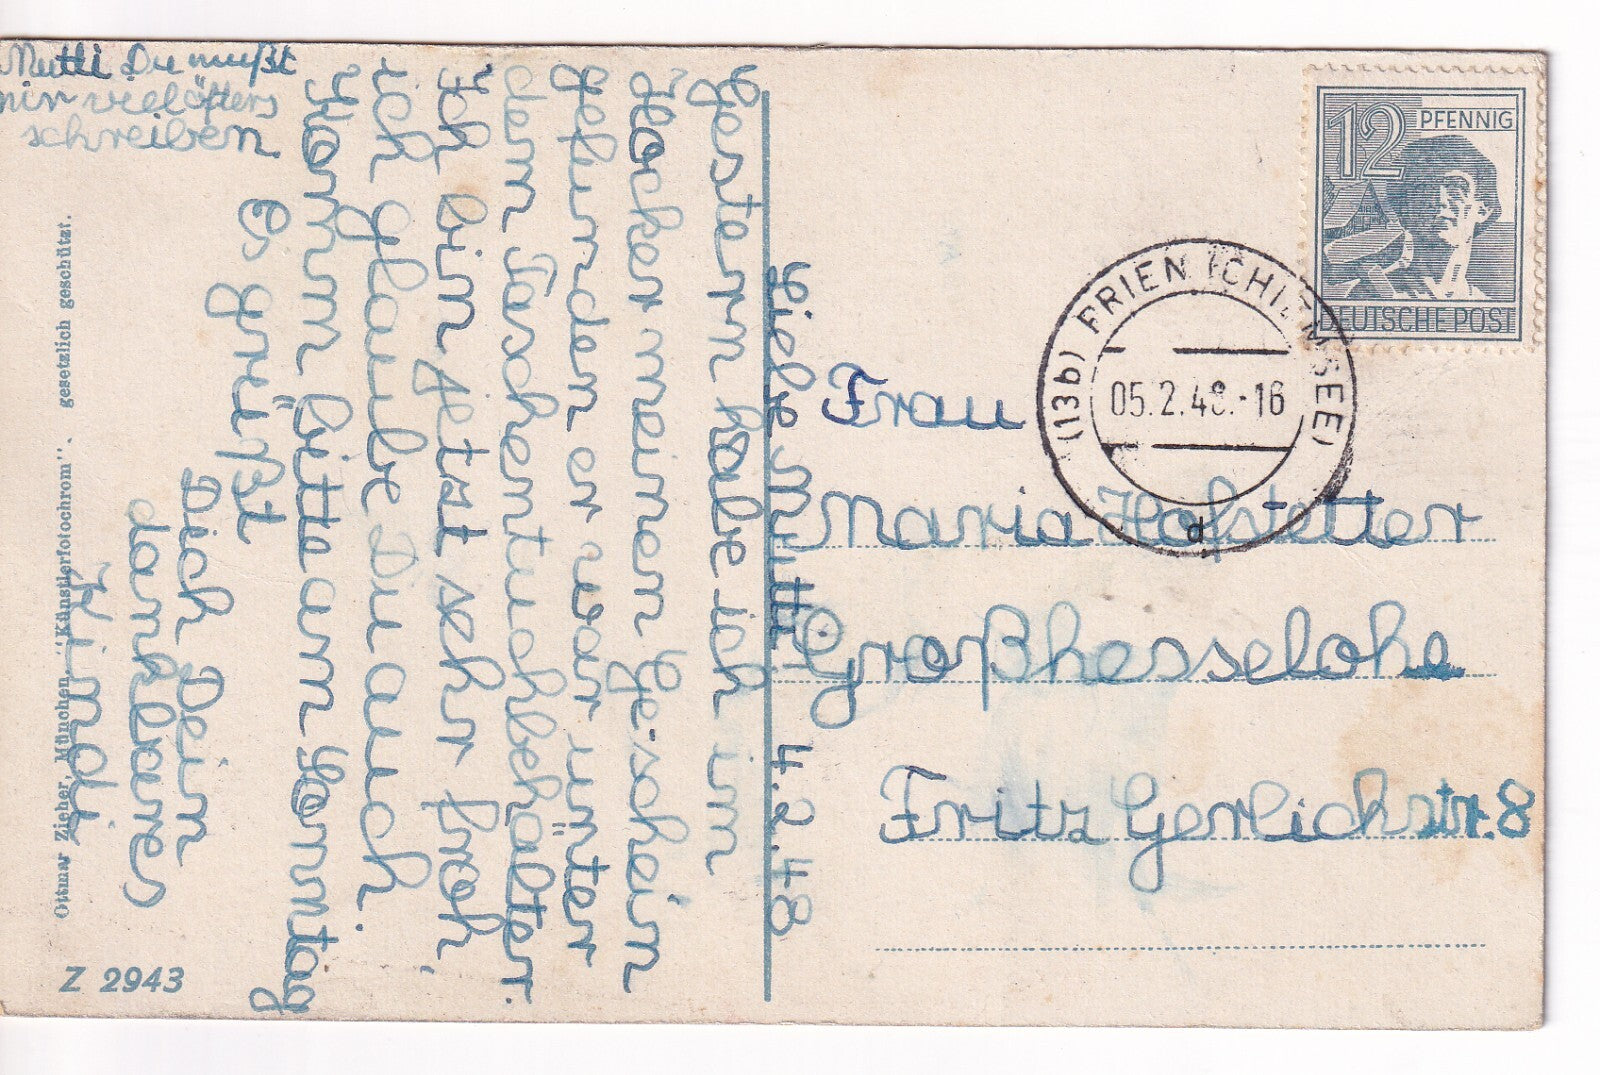 Liebe Mutti! 4.2.48
Gestern habe ich im
Hocker meinen Ge-schein
gefunden er war unter
dem Taschentuchbehälter.
Ich bin jetzt sehr froh,
ich glaube Du auch.
Komm bitte am Sonntag
Es grüßt
Dich Dein
dankbares
Kindi
Mutti Du mußt
mir viel öfters
schreiben
Frau
Maria Hofstetter
Großhesselohe
Fritz Gerlichstr. 8
12 PFENNIG
DEUTSCHE POST
(13b) PRIEN (CHIEMSEE)
05.2.48.-16
d
Ottmar Zieher, München. "Künstlerfotochrom". gesetzlich geschützt.
Z 2943